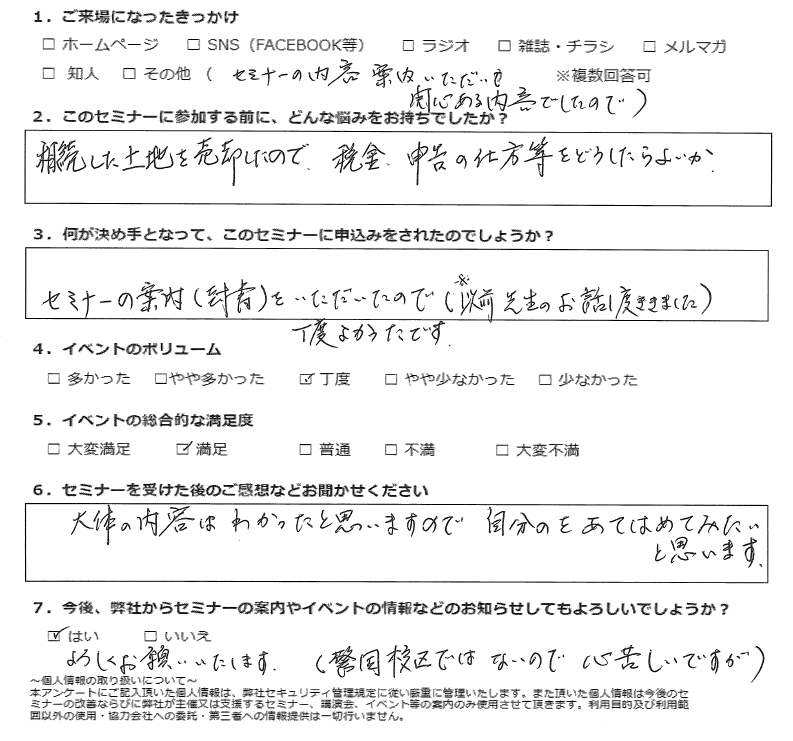 1．ご来場になったきっかけ
□ ホームページ □ SNS（FACEBOOK等） □ ラジオ □ 雑誌・チラシ □ メルマガ
□ 知人 □ その他（ セミナーの内容案内いただいき ※複数回答可
関心ある内容でしたので）
2．このセミナーに参加する前に、どんな悩みをお持ちでしたか？
相続した土地を売却したので、税金、申告の仕方等をどうしたらよいか
3．何が決め手となって、このセミナーに申込みをされたのでしょうか？
※
セミナーの案内（封書）をいただいたので（以前先生のお話1度ききました）
丁度よかったです.
4．イベントのボリューム
□ 多かった □やや多かった ☑ 丁度 □ やや少なかった □ 少なかった
5．イベントの総合的な満足度
□ 大変満足 ☑ 満足 □ 普通 □ 不満 □ 大変不満
6．セミナーを受けた後のご感想などお聞かせください
大体の内容はわかったと思いますので 自分のをあてはめてみたい
と思います.
7．今後、弊社からセミナーの案内やイベントの情報などのお知らせしてもよろしいでしょうか？
☑はい □ いいえ
よろしくお願いいたします. （警固校区ではないので心苦しいですが）
～個人情報の取り扱いについて～
本アンケートにご記入頂いた個人情報は、弊社セキュリティ管理規定に従い厳重に管理いたします。また頂いた個人情報は今後のセ
ミナーの改善ならびに弊社が主催又は支援するセミナー、講演会、イベント等の案内のみ使用させて頂きます。利用目的及び利用範
囲以外の使用・協力会社への委託・第三者への情報提供は一切行いません。